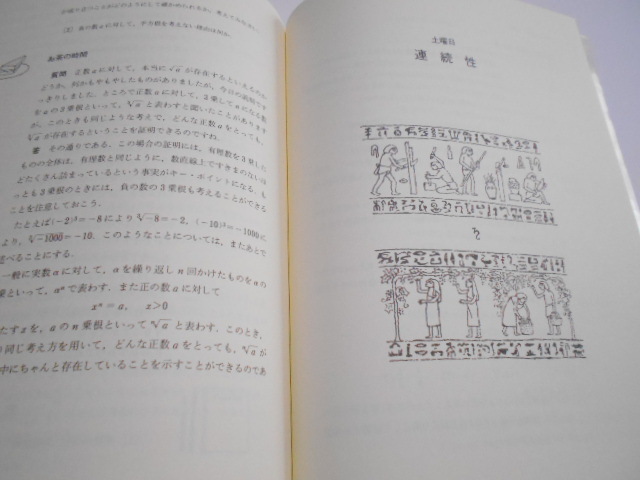 [2] 負の数aに対して,平方根を考えない理由は何か.
お茶の時間
質問 正数aに対して,本当に√aが存在するといえるのか
どうか,何かもやもやしたものがありましたが,今日の説明では
っきりしました.ところで正数aに対し,3乗してaになる数
をaの3乗根といって,∛aと表わすと聞いたことがあります
が,このときも同じような考えで,どんな正数aをとっても,
∛aが存在するということを証明できるのですね.
答 その通りである.この場合の証明には,有理数を3乗した
ものの全体は,有理数と同じように,数直線上ですきまのないほ
どたくさん詰まっているという事実がキー・ポイントになる.も
っとも3乗根のときには,負の数の3乗根も考えることができる
ことを注意しておこう.
たとえば(-2)³=-8により∛-8=-2,(-10)³=-1000に
より,∛-1000=-10.このようなことについては,またあとで
述べることにする.
一般に実数aに対して,aを繰り返しn回かけたものをaの
乗といって,aⁿで表わす.また正の数aに対して
xⁿ=a, x>0
たすxを,aのn乗根といってⁿ√aと表わす.このとき,
同じ考え方を用いて,どんな正数aをとっても,ⁿ√aが
中にちゃんと存在していることを示すことができるのであ
土曜日
連続性